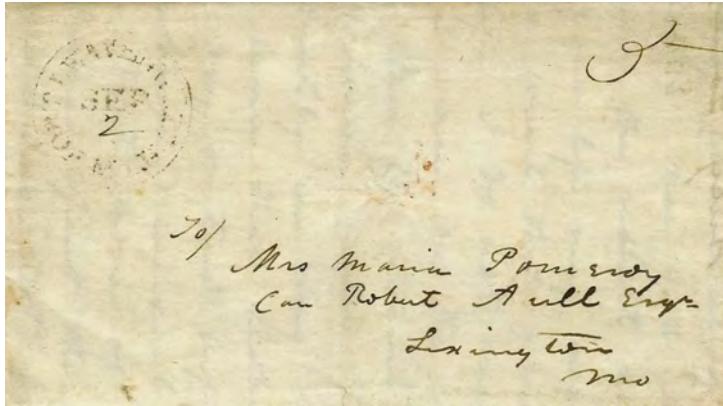 5
SEP
2
To/
Mrs Maria Pomeroy
Care Robert Aull Esqr
Lexington
Mo